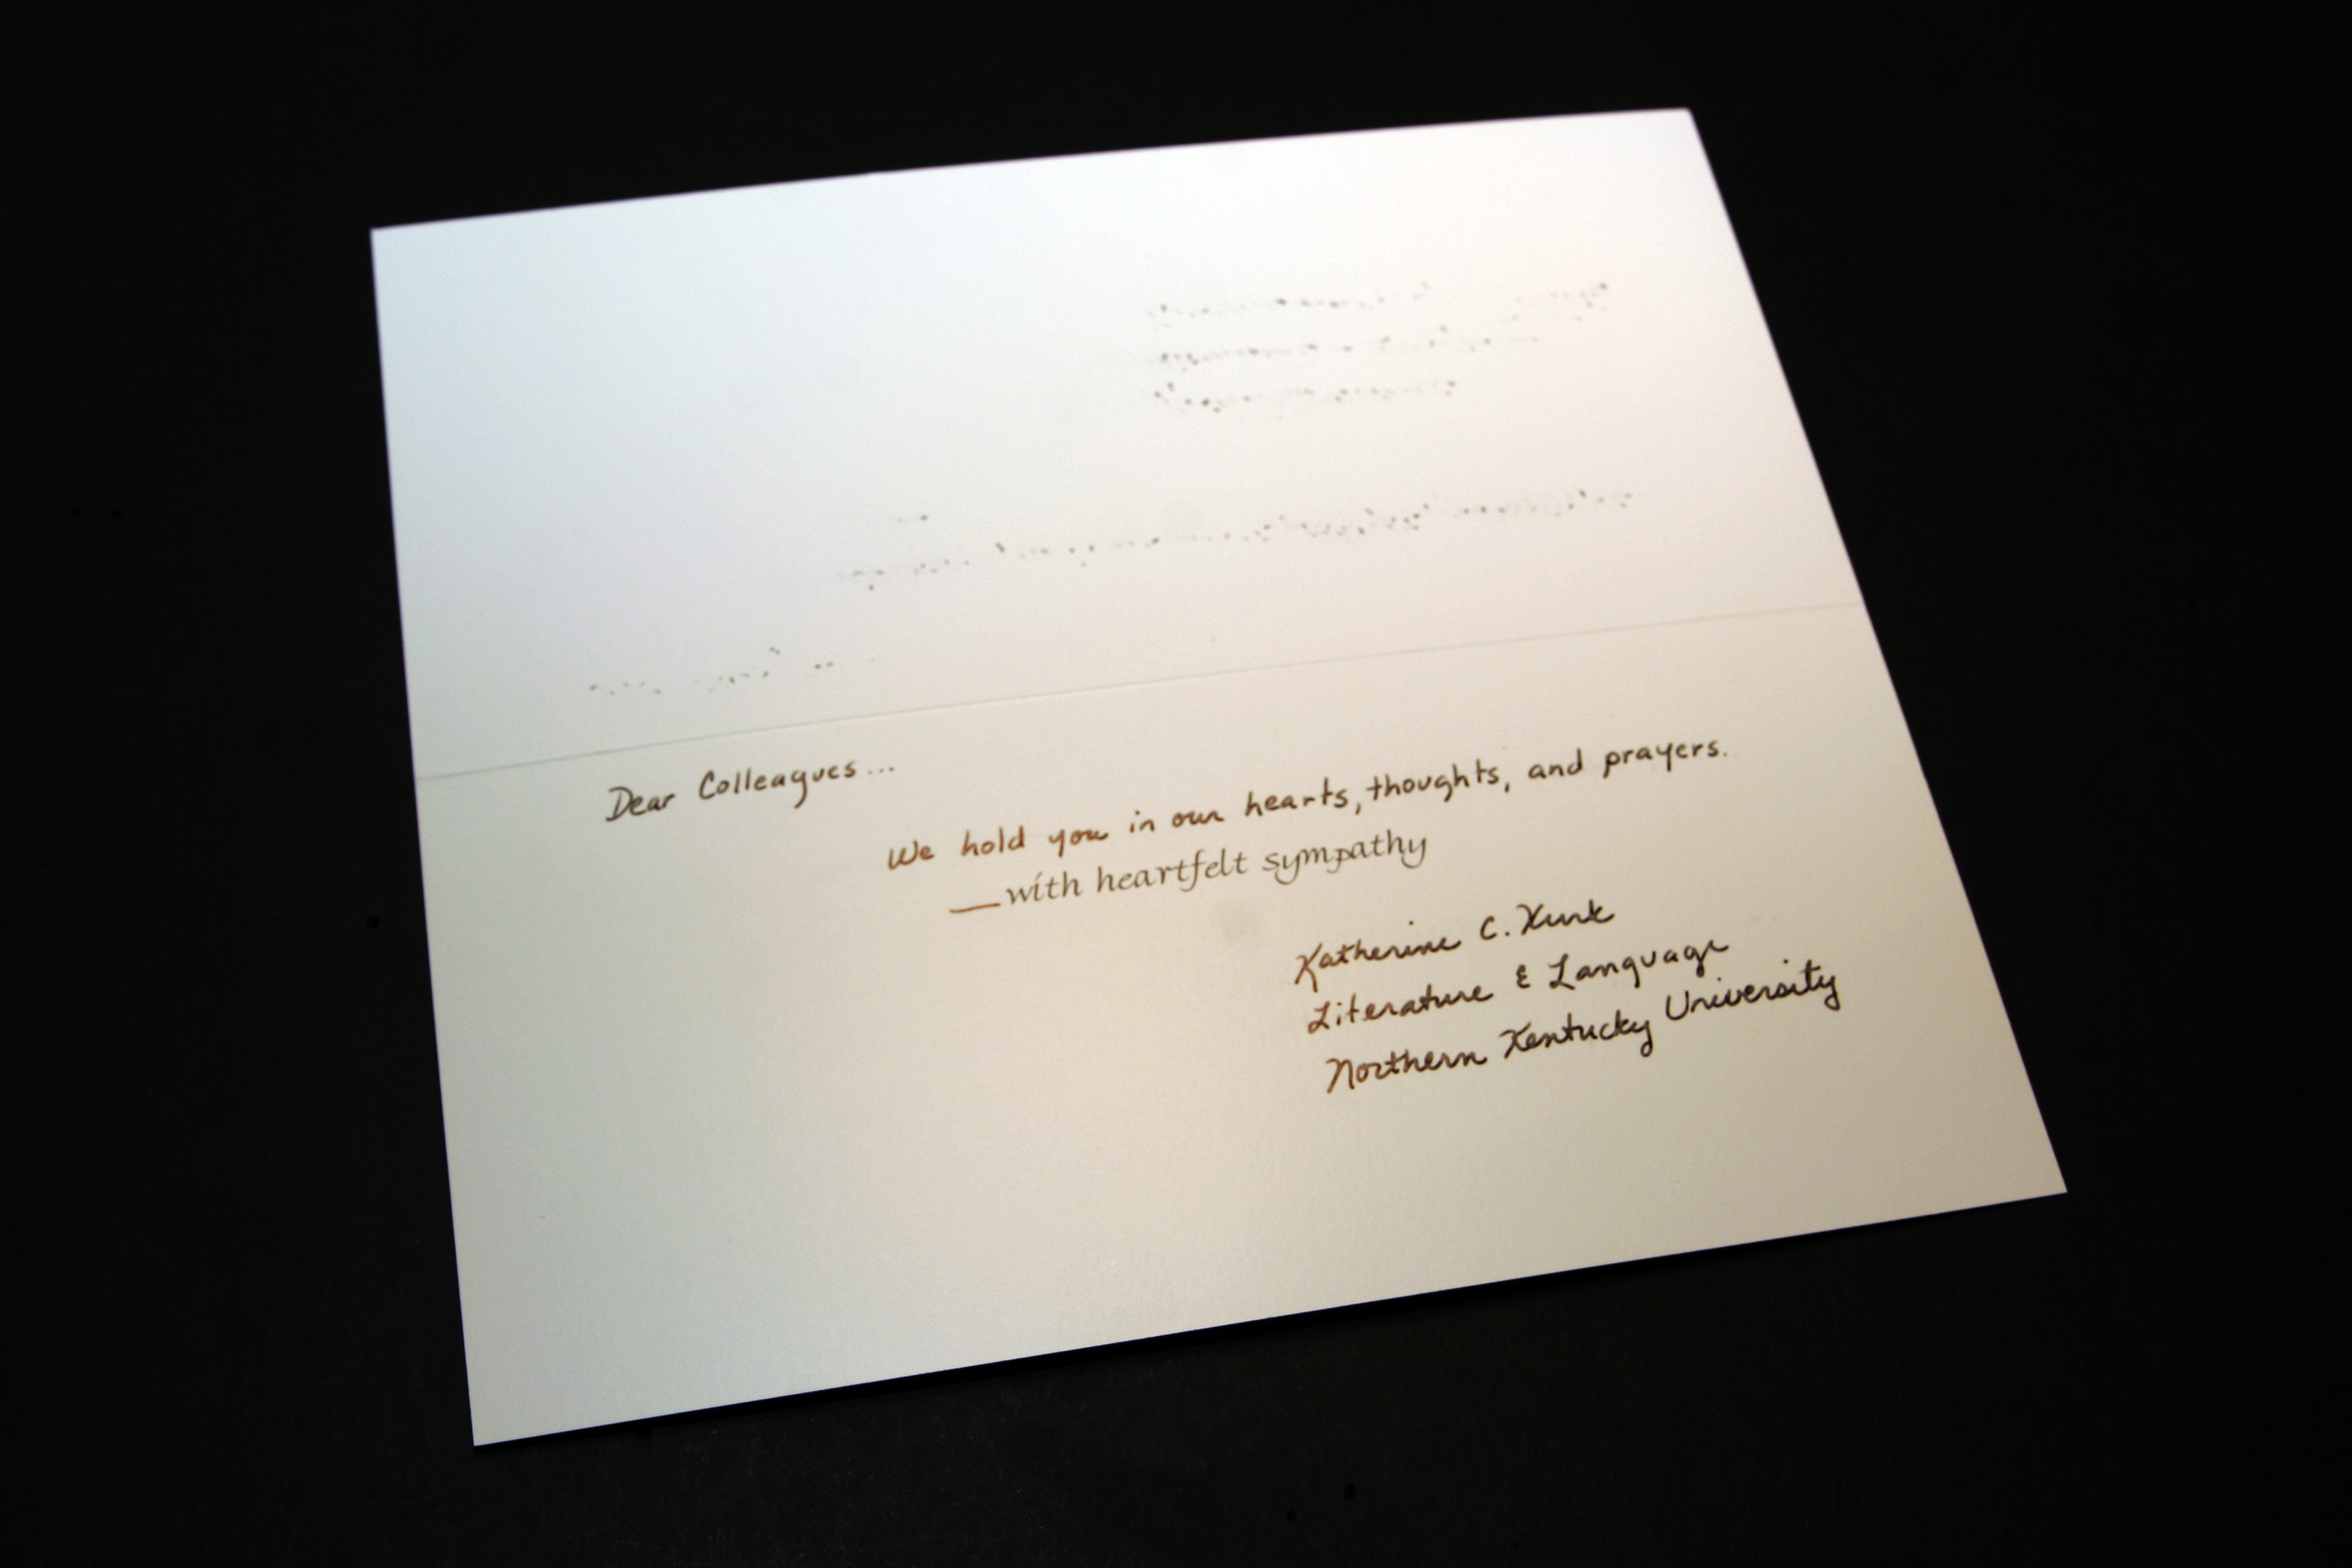 Dear Colleagues...
We hold you in our hearts, thoughts, and prayers.
—with heartfelt sympathy
Katherine C. Kurk
Literature & Language
Northern Kentucky University